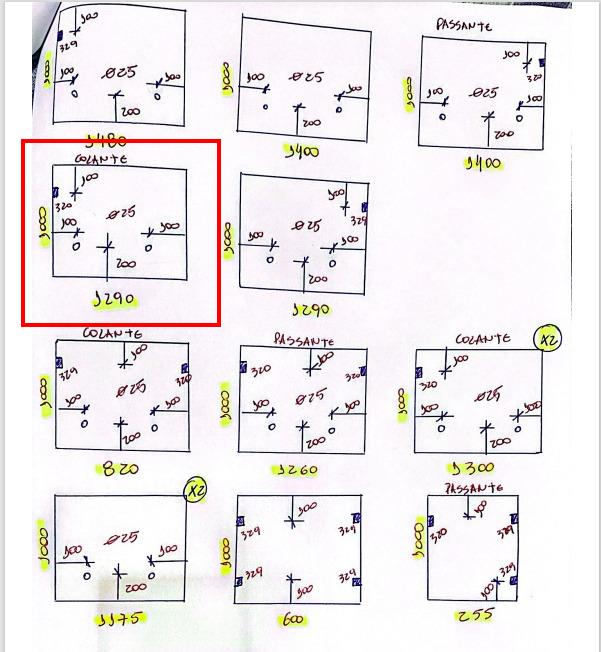 100
329
1000
100
Ø25
100
0
0
200
1480
1000
100
Ø25
100
0
0
200
1400
PASSANTE
100
320
1000
100
Ø25
100
0
0
200
1400
COLANTE
100
320
1000
100
Ø25
100
0
0
200
1290
100
329
1000
100
Ø25
100
0
0
200
1290
COLANTE
100
329
320
1000
100
Ø25
100
0
0
200
820
PASSANTE
100
320
320
1000
100
Ø25
100
0
0
200
1260
COLANTE
X2
100
320
1000
100
Ø25
100
0
0
200
1300
X2
1000
100
Ø25
100
0
0
200
1175
329
100
329
1000
329
329
100
600
PASSANTE
100
320
329
1000
329
100
255